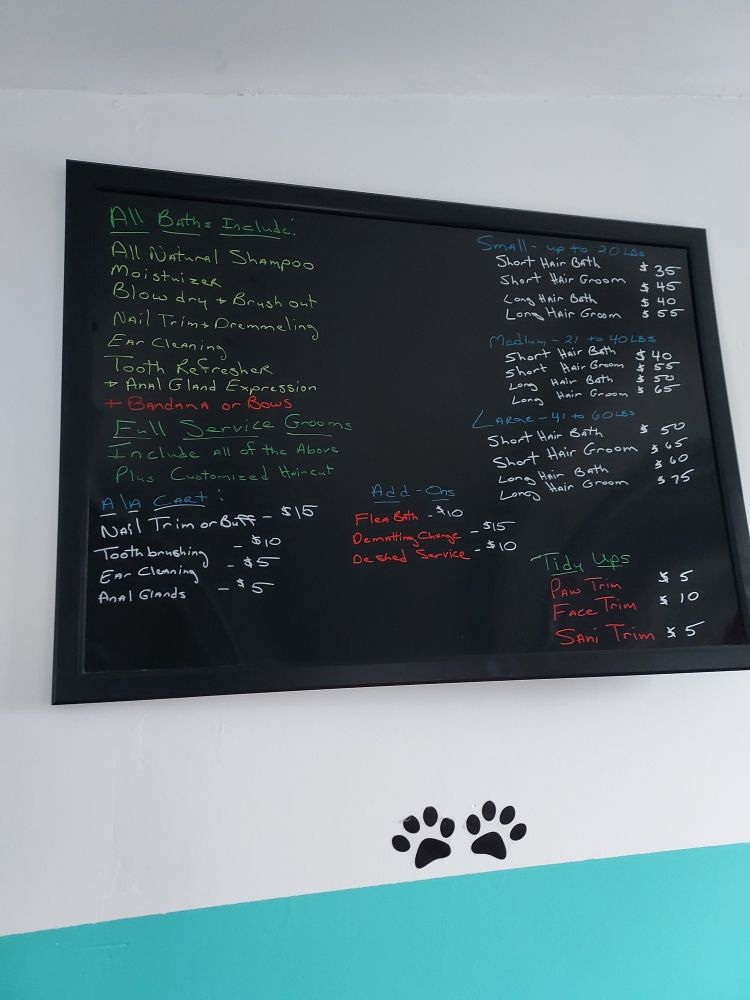 All Baths Include:
All Natural Shampoo
Moistuizer
Blow dry + Brush out
Nail Trim + Dremmeling
Ear Cleaning
Tooth Refresher
+ Anal Gland Expression
+ Bandana or Bows
Full Service Grooms
Include all of the Above
Plus Customized Haircut
Ala Cart:
Nail Trim or Buff - $15
Toothbrushing - $10
Ear Cleaning - $5
Anal Glands - $5
Add-Ons
Flea Bath - $10
Dematting Charge - $15
Deshed Service - $10
Small - up to 20 LBS
Short Hair Bath $35
Short Hair Groom $45
Long Hair Bath $40
Long Hair Groom $55
Medium - 21 to 40 LBS
Short Hair Bath $40
Short Hair Groom $55
Long Hair Bath $50
Long Hair Groom $65
Large - 41 to 60 LBS
Short Hair Bath $50
Short Hair Groom $65
Long Hair Bath $60
Long Hair Groom $75
Tidy Ups
Paw Trim $5
Face Trim $10
Sani Trim $5